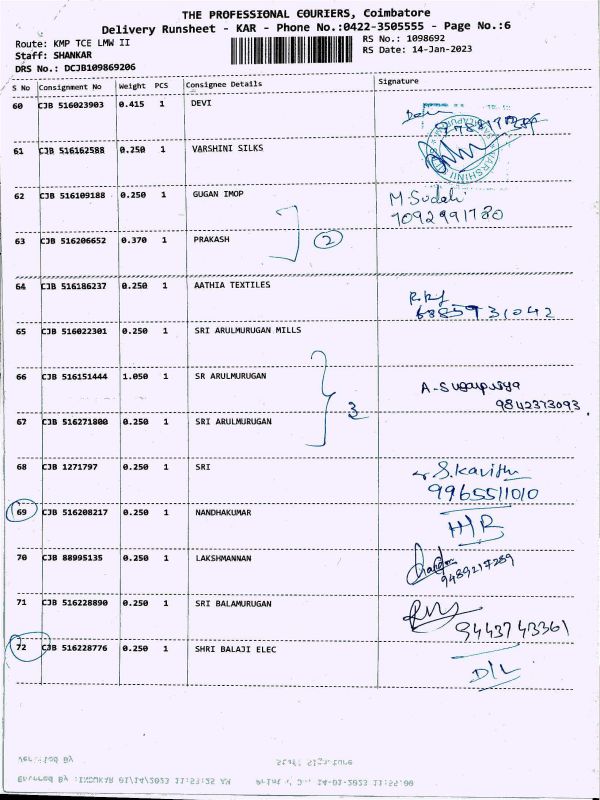 THE PROFESSIONAL COURIERS, Coimbatore
Delivery Runsheet - KAR - Phone No.:0422-3505555 - Page No.:6
Route: KMP TCE LMW II
RS No.: 1098692
Staff: SHANKAR
RS Date: 14-Jan-2023
DRS No.: DCJB109869206
S No Consignment No Weight PCS Consignee Details Signature
60 CJB 516023903 0.415 1 DEVI
61 CJB 516162588 0.250 1 VARSHINI SILKS
62 CJB 516109188 0.250 1 GUGAN IMOP M. Sudali
7092991780
63 CJB 516206652 0.370 1 PRAKASH 2
64 CJB 516186237 0.250 1 AATHIA TEXTILES
6385931042
65 CJB 516022301 0.250 1 SRI ARULMURUGAN MILLS
66 CJB 516151444 1.050 1 SR ARULMURUGAN
3
9842373093
67 CJB 516271800 0.250 1 SRI ARULMURUGAN
68 CJB 1271797 0.250 1 SRI S. Kavitha
9965511010
69 CJB 516208217 0.250 1 NANDHAKUMAR H/R
70 CJB 88995135 0.250 1 LAKSHMANNAN
9489217289
71 CJB 516228890 0.250 1 SRI BALAMURUGAN
9443743361
72 CJB 516228776 0.250 1 SHRI BALAJI ELEC
D/L
Verified By Staff Signature
Entered By :INDUKAR 01/14/2023 11:53:25 AM 14-01-2023 11:55:00